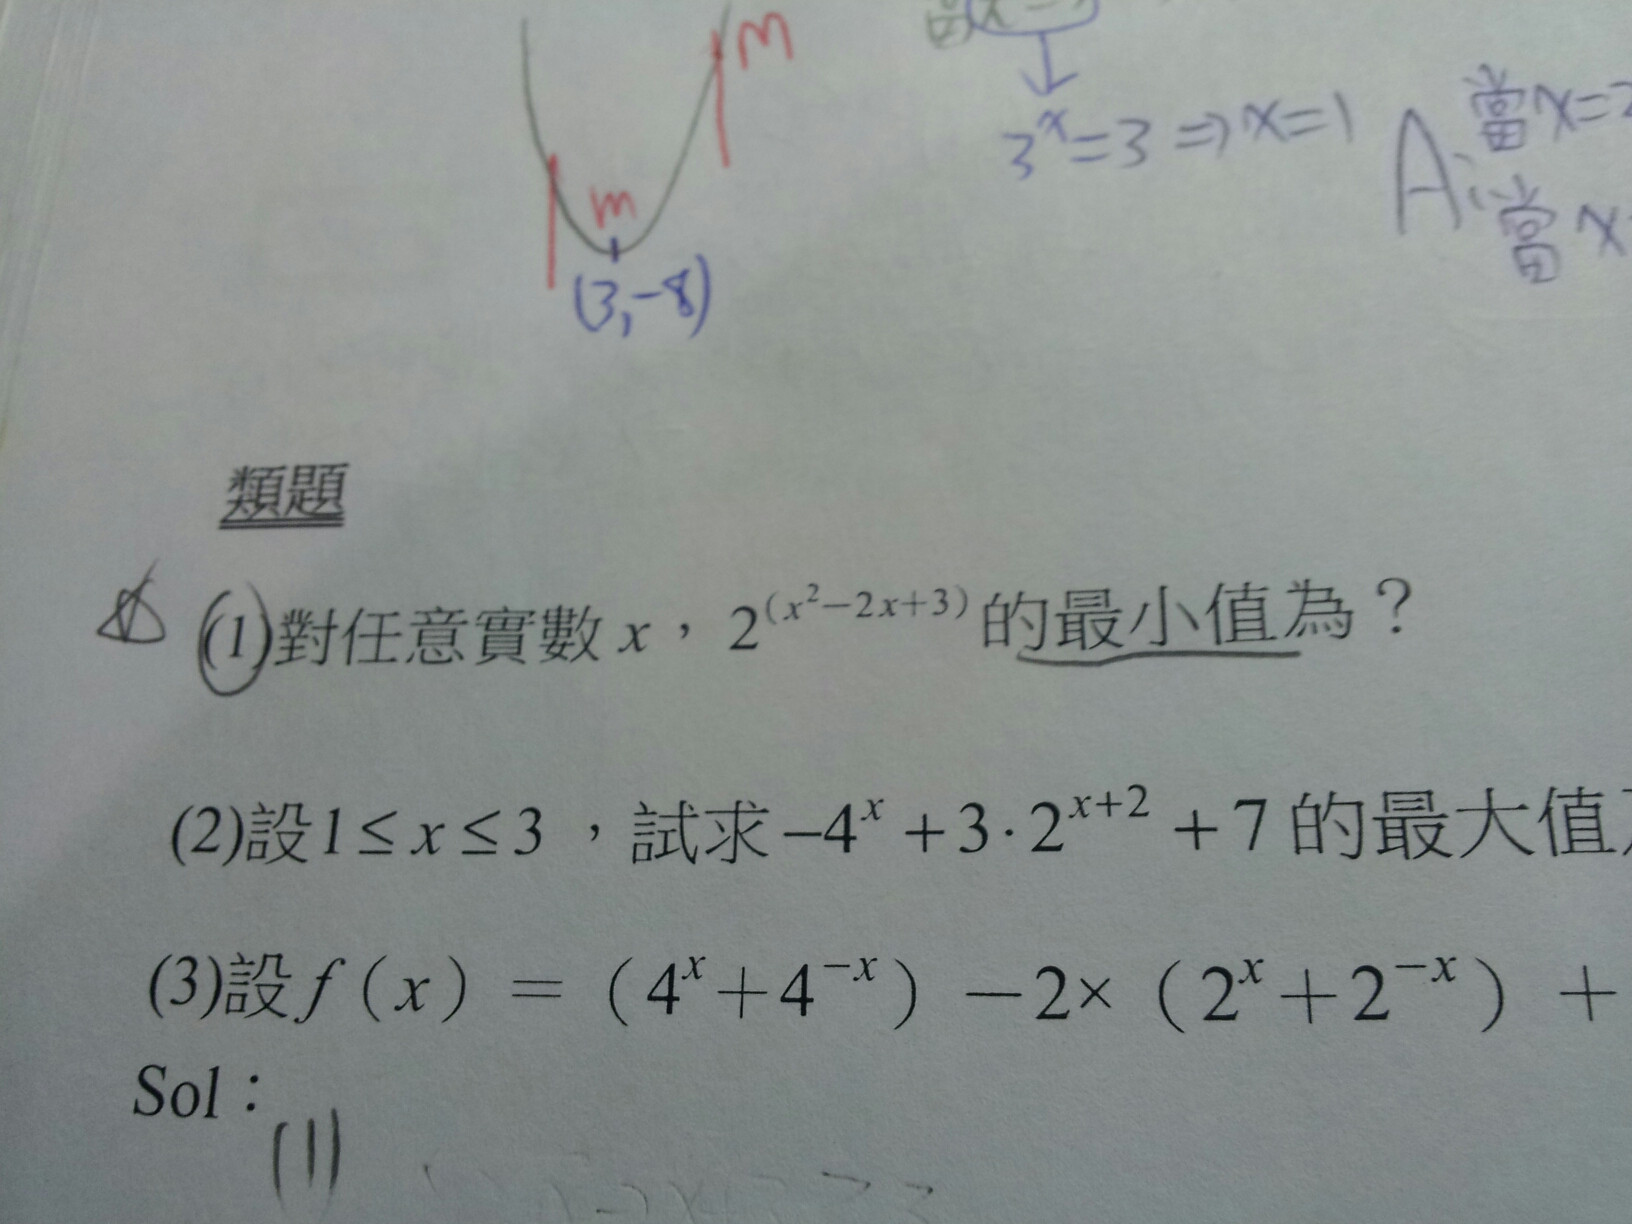 m
3^x=3 ⇒ x=1
當x=2
A:
當x
m
(3,-8)
類題
(1)對任意實數 x，2^(x²−2x+3) 的最小值為？
(2)設1≤x≤3，試求−4^x+3·2^(x+2)+7的最大值
(3)設f(x)＝(4^x+4^−x)−2×(2^x+2^−x)＋
Sol：
(1)